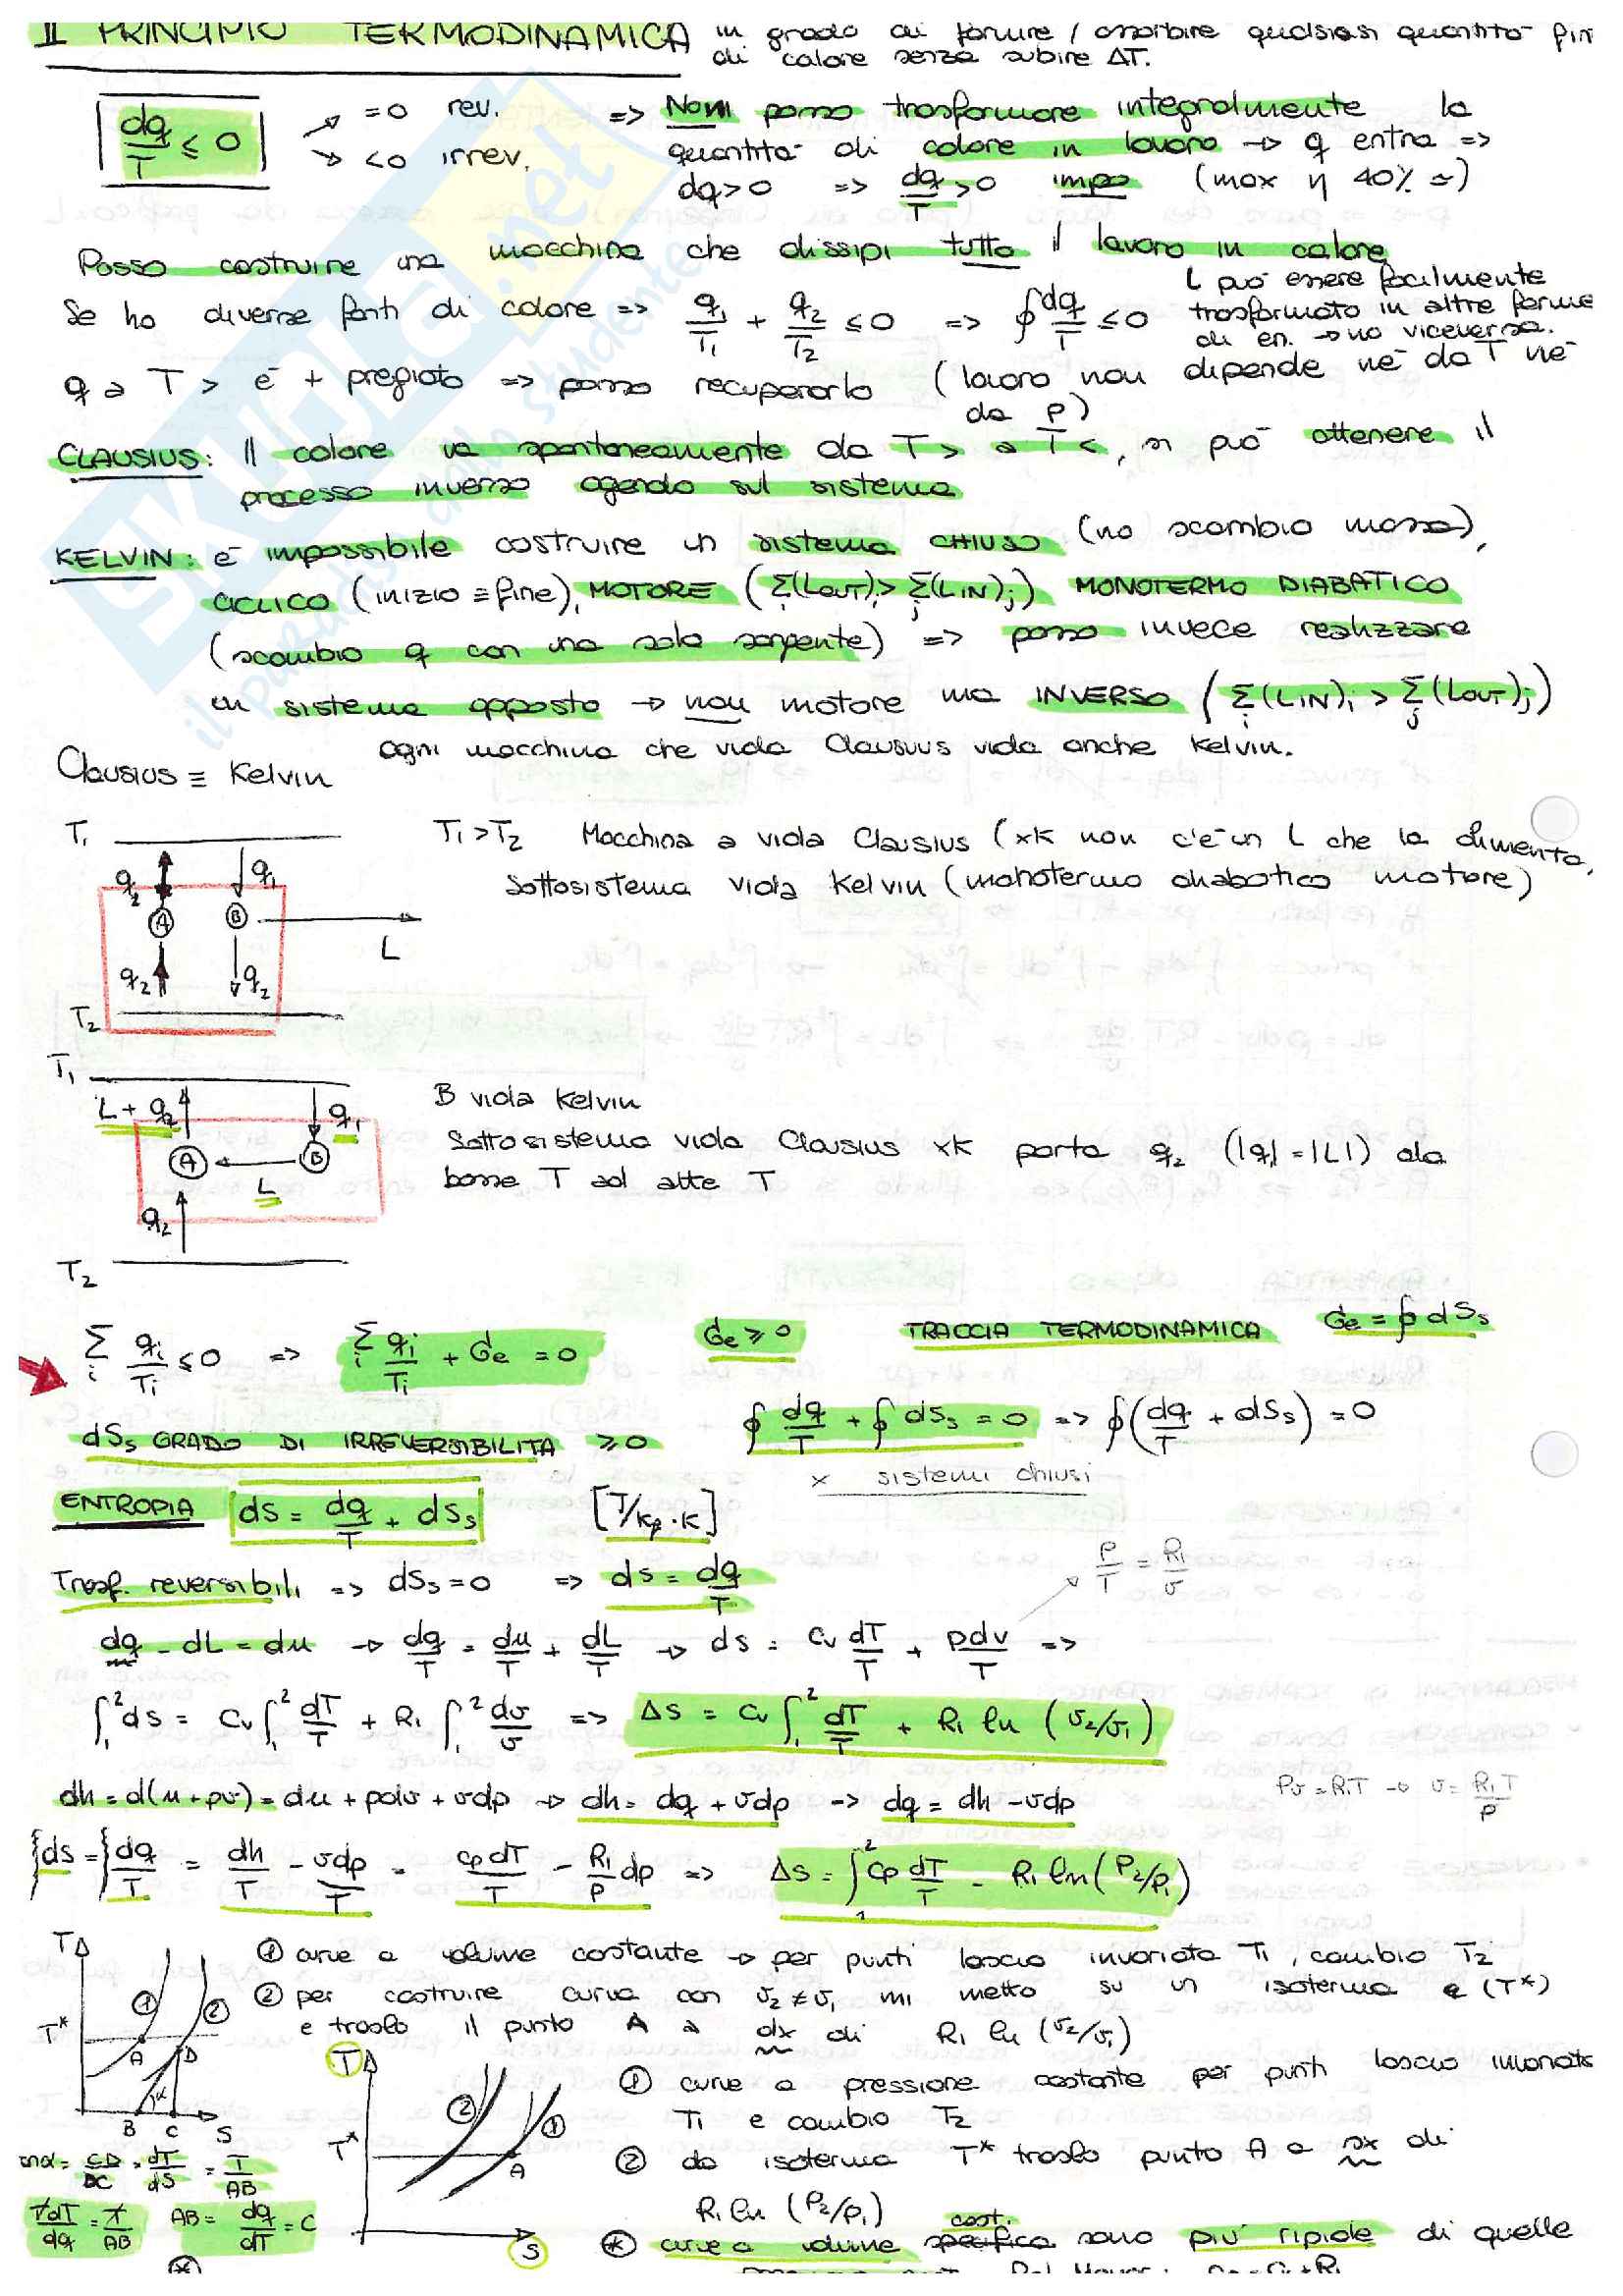 II PRINCIPIO TERMODINAMICA in grado di fornire / assorbire qualsiasi quantità
di calore senza subire ΔT.
dq/T ≤ 0 → =0 rev. → <0 irrev. => Non posso trasformare integralmente la
quantità di calore in lavoro → q entra =>
dq>0 => dq/T >0 impo (max η 40% ≃)
Posso costruire una macchina che dissipi tutto il lavoro in calore
L può essere facilmente
trasformato in altre forme
di en. → no viceversa.
Se ho diverse fonti di calore => q1/T1 + q2/T2 ≤ 0 => ∮ dq/T ≤ 0
q a T > è + pregiato => posso recuperarlo (lavoro non dipende né da T né
da P)
CLAUSIUS: Il calore va spontaneamente da T> a T<, si può ottenere il
processo inverso agendo sul sistema
KELVIN: è impossibile costruire un sistema CHIUSO (no scambio massa),
CICLICO (inizio ≡ fine), MOTORE (Σi(LOUT)i > Σj(LIN)j) MONOTERMO DIABATICO
(scambio q con una sola sorgente) => posso invece realizzare
un sistema opposto → non motore ma INVERSO (Σi(LIN)i > Σj(LOUT)j)
ogni macchina che viola Clausius viola anche Kelvin.
Clausius ≡ Kelvin
T1
T1 > T2 Macchina a viola Clausius (xK non c'è un L che la alimenta,
Sottosistema viola Kelvin (monotermo diabatico motore)
q2 q1
A B
L
q2 q2
T2
T1
L + q2 q1
B viola Kelvin
Sottosistema viola Clausius xK porta q2 (|q1| = |L|) da
basse T ad alte T
A B
L
q2
T2
Σi qi/Ti ≤ 0 => Σi qi/Ti + Ge = 0 Ge ≥ 0 TRACCIA TERMODINAMICA Ge = ∮ dSs
dSs GRADO DI IRREVERSIBILITA ≥ 0 ∮ dq/T + ∮ dSs = 0 => ∮(dq/T + dSs) = 0
x sistemi chiusi
ENTROPIA dS = dq/T + dSs [J/kg·K]
Trasf. reversibili => dSs = 0 => ds = dq/T
P/T = R1/v
dq - dL = du → dq/T = du/T + dL/T → ds = cv dT/T + pdv/T =>
∫1² ds = cv ∫1² dT/T + R1 ∫1² dv/v => Δs = cv ∫1² dT/T + R1 ln (v2/v1)
dh = d(u + pv) = du + pdv + vdp → dh = dq + vdp → dq = dh - vdp
Pv = R1T → v = R1T/P
∫ds = ∫dq/T = dh/T - vdp/T = cpdT/T - R1/P dp => Δs = ∫1² cp dT/T - R1 ln (P2/P1)
① curve a volume costante → per punti lascio invariata T1, cambio T2
② per costruire curva con v2 ≠ v1 mi metto su un isoterma (T*)
e traslo il punto A a dx di R1 ln (v2/v1)
T
① ②
T*
A D
α
B C S
T
② ①
T*
A
S
① curve a pressione costante per punti lascio invariata
T1 e cambio T2
② da isoterma T* traslo punto A a sx di
R1 ln (P2/P1)
tanα = CD/BC = dT/dS = T/AB
TdT/dq = T/AB AB = dq/dT = C
cost.
(*) curve a volume specifico sono più ripide di quelle
(*)
skuola.net
il paradiso dello studente